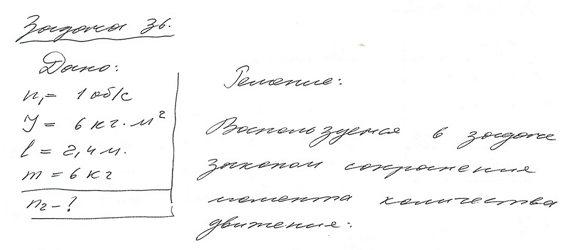 Задача 36.
Дано:
n₁ = 1 об/с
J = 6 кг·м²
l = 2,4 м.
m = 6 кг
n₂ - ?
Решение:
Воспользуемся в задаче
законом сохранения
момента количества
движения: